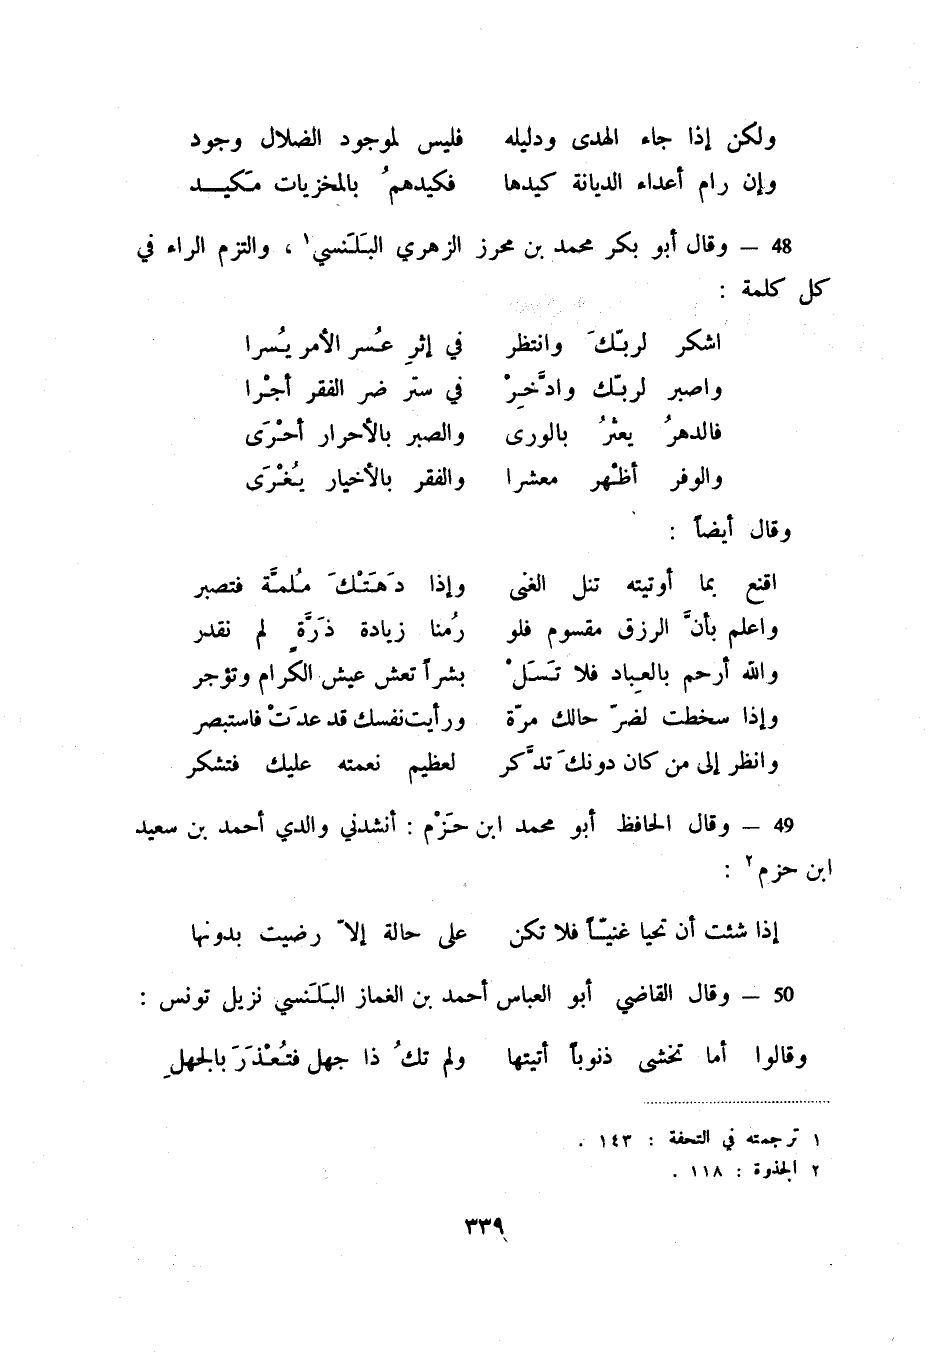 ولكن إذا جاء الهدى ودليله فليس لموجود الضلال وجود
وإن رام أعداء الديانة كيدها فكيدهمُ بالمخزيات مَكيـــد
48 – وقال أبو بكر محمد بن محرز الزهري البَلَنسي١ ، والتزم الراء في
كل كلمة :
اشكر لربّكَ وانتظر في إثرِ عُسر الأمر يُسرا
واصبر لربّك وادَّخِرْ في ستر ضر الفقر أجْرا
فالدهرُ يعثرُ بالورى والصبر بالأحرار أحْرَى
والوفر أظْهر معشرا والفقر بالأخيار يُغْرَى
وقال أيضاً :
اقنع بما أوتيته تنل الغنى وإذا دَهَتْكَ مُلمَّة فتصبر
واعلم بأنَّ الرزق مقسوم فلو رُمنا زيادة ذَرَّةٍ لم نقدر
والله أرحم بالعِباد فلا تَسَلْ بشراً تعش عيش الكرام وتؤجر
وإذا سخطت لضرّ حالك مرّة ورأيت نفسك قد عدَتْ فاستبصر
وانظر إلى من كان دونكَ تدَّكر لعظيم نعمته عليك فتشكر
49 – وقال الحافظ أبو محمد ابن حَزْم : أنشدني والدي أحمد بن سعيد
ابن حزم٢ :
إذا شئت أن تحيا غنيّـاً فلا تكن على حالة إلاّ رضيت بدونها
50 – وقال القاضي أبو العباس أحمد بن الغماز البَلَنسي نزيل تونس :
وقالوا أما تخشى ذنوباً أتيتها ولم تكُ ذا جهل فتُعْذَرَ بالجهلِ
١ ترجمته في التحفة : ١٤٣ .
٢ الجذوة : ١١٨ .
٣٣٩